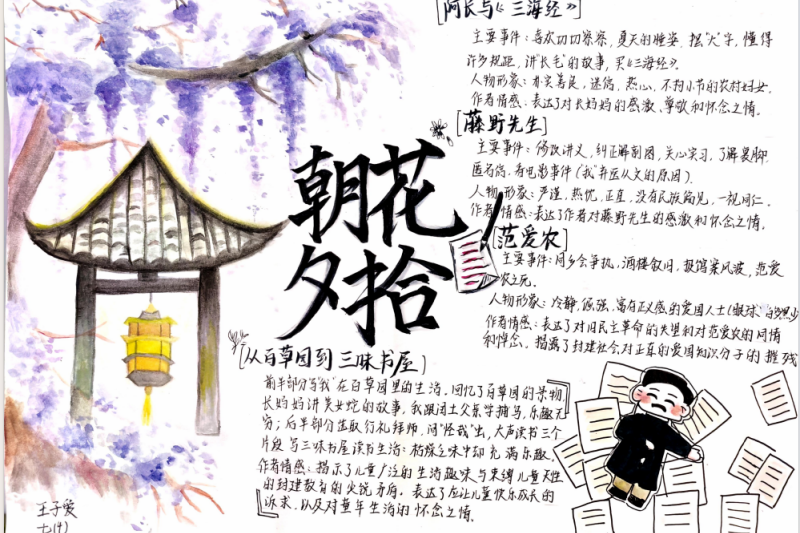 [阿长与《三海经》]
主要事件:喜欢切切察察,夏天的睡姿,摆“大”字,懂得
许多规距,讲“长毛”的故事,买《三海经》。
人物形象:朴实善良,迷信,热心,不拘小节的农村妇女.
作者情感:表达了对长妈妈的感激、尊敬和怀念之情。
[藤野先生]
主要事件:修改讲义,纠正解剖图,关心实习,了解裹脚.
匿名信,看电影事件(我弃医从文的原因).
人物形象:严谨,热忱,正直,没有民族偏见,一视同仁.
作者情感:表达了作者对藤野先生的感激和怀念之情。
朝花
夕拾
[范爱农]
主要事件:同乡会争执,酒楼叙旧,报馆案风波,范爱
农之死.
人物形象:冷静,倔强,富有正义感的爱国人士(眼球
作者情感:表达了对旧民主革命的失望和对范爱农的同情
和悼念,揭露了封建社会对正直的爱国知识分子的摧残
(从百草园到三味书屋)
前半部分写“我”在百草园里的生活.回忆了百草园的景物,
长妈妈讲美女蛇的故事,我跟闰土父亲学捕鸟,乐趣无
穷;后半部分选取行礼拜师,问“怪哉”虫,大声读书三个
片段写三味书屋读书生活:枯燥之味中却充满乐趣.
作者情感:揭示了儿童广泛的生活趣味与束缚儿童天性
的封建教育的尖锐矛盾.表达了应让儿童快乐成长的
诉求,以及对童年生活的怀念之情.
王子爱
七(4)